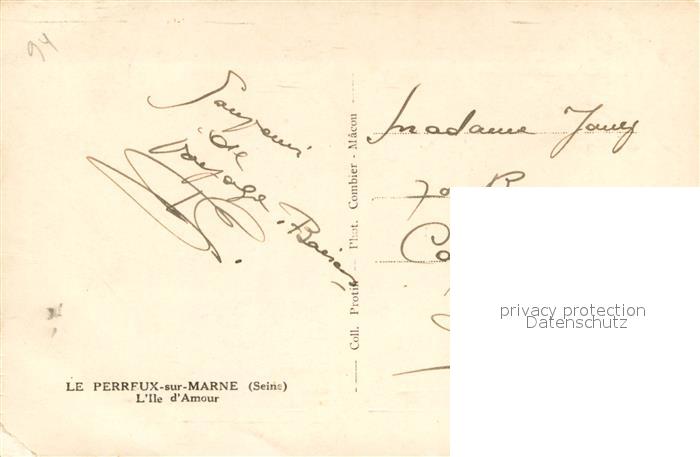 94
Souvenir
de
voyage
Baisers
Madame Jouy
70 R
Co
Coll. Protis - Phot. Combier - Mâcon
LE PERREUX-sur-MARNE (Seine)
L'Ile d'Amour
privacy protection
Datenschutz